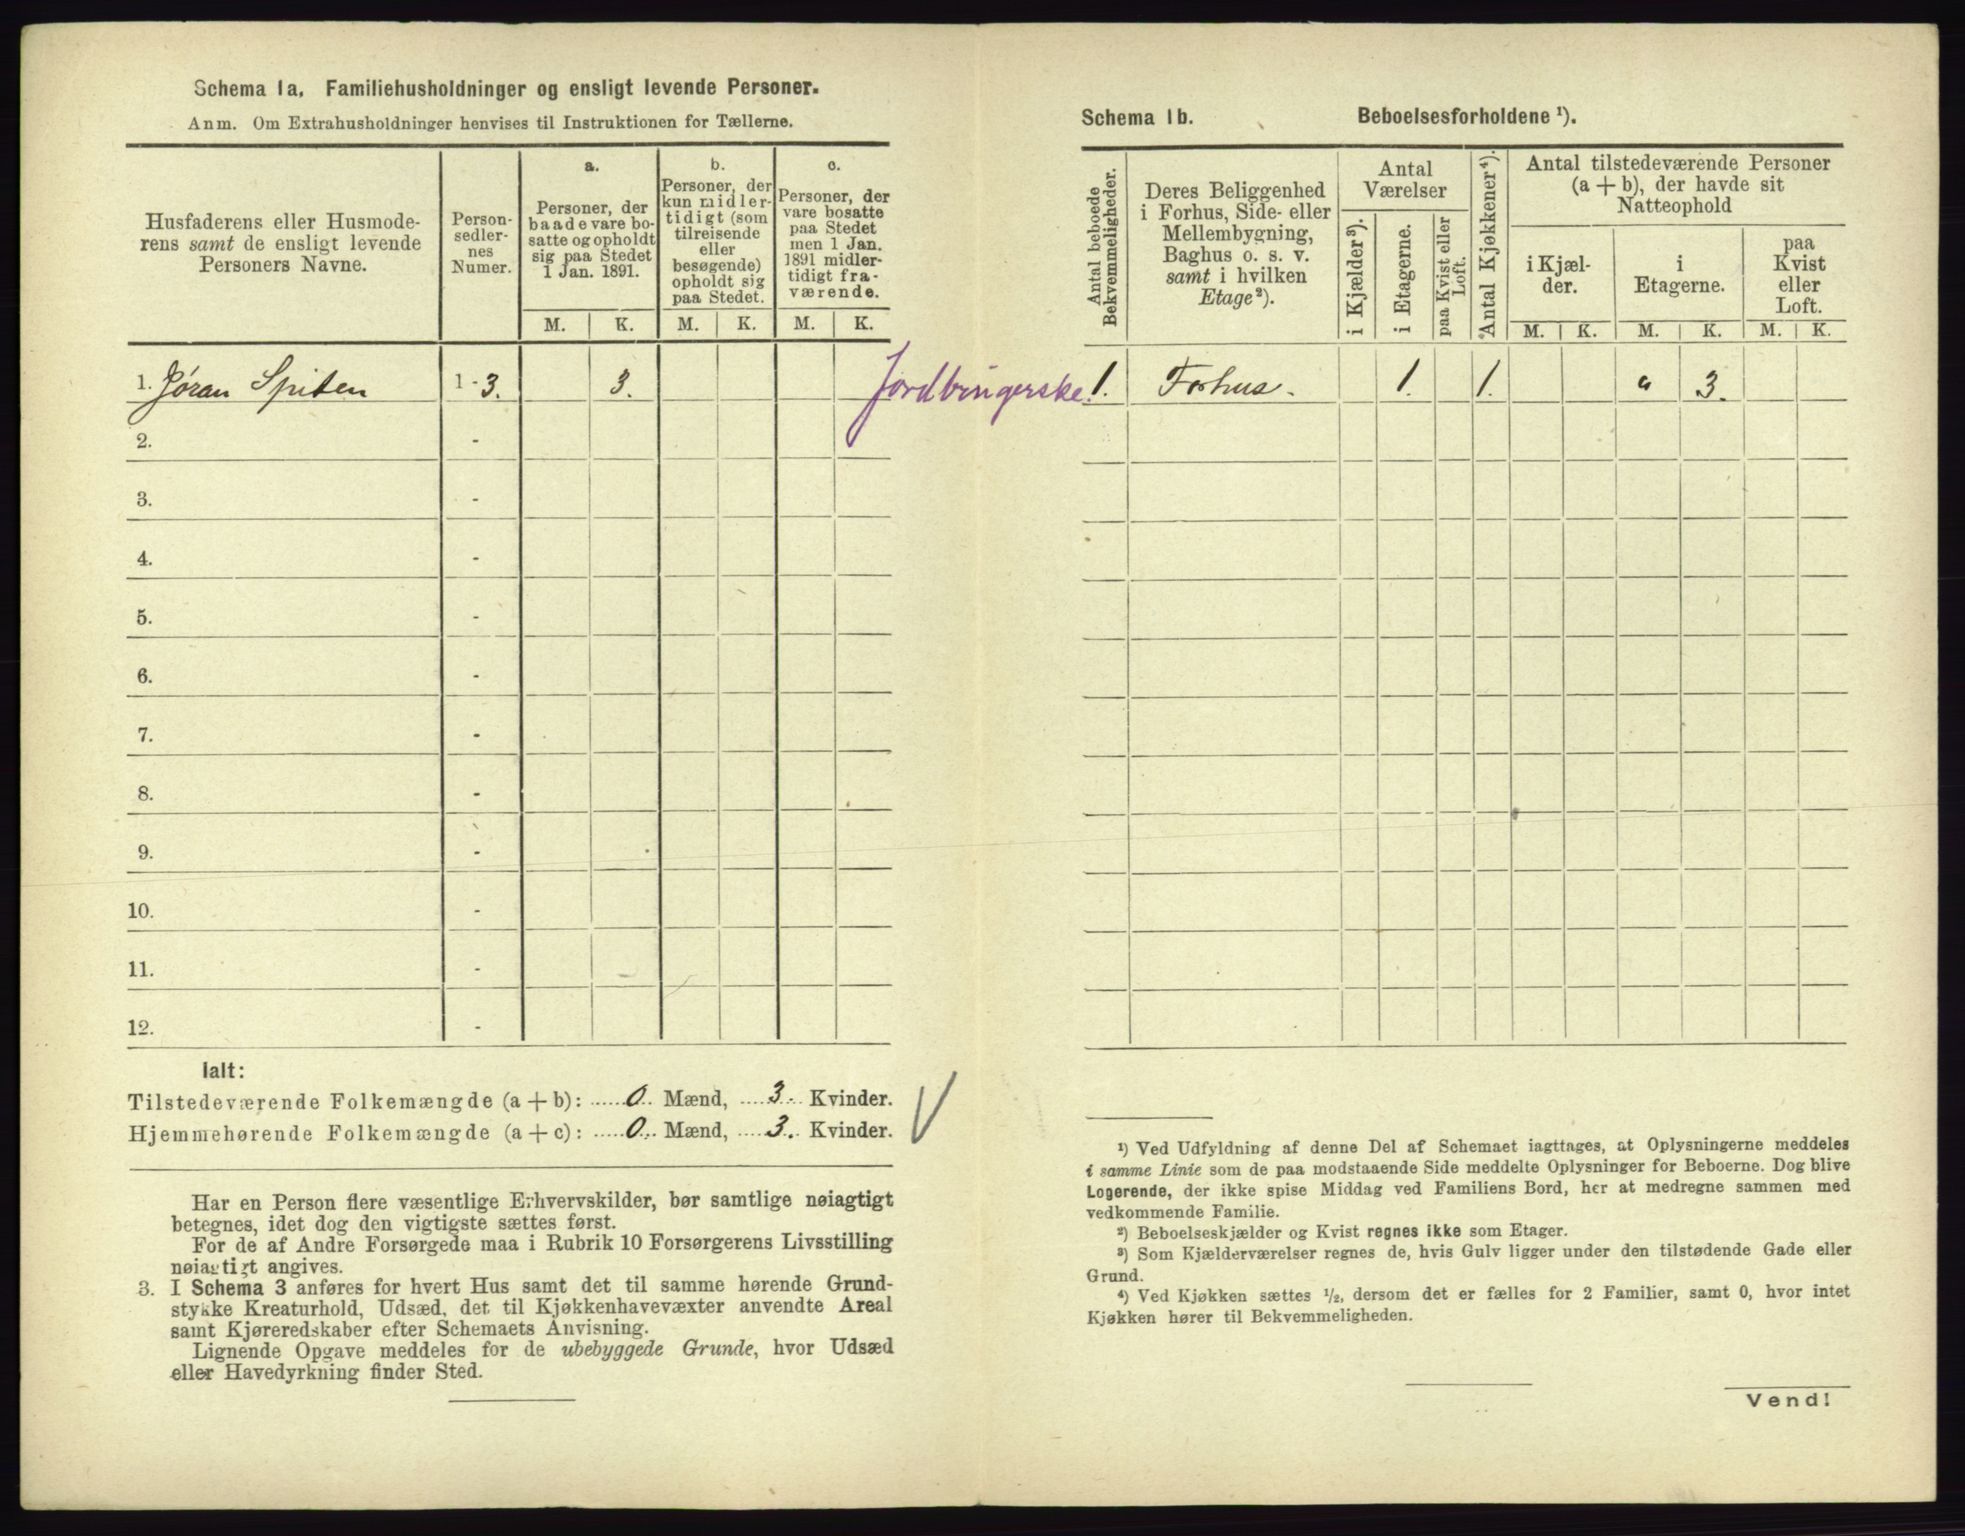 Schema 1a. Familiehusholdninger og ensligt levende Personer.
Anm. Om Extrahusholdninger henvises til Instruktionen for Tællerne.
Husfaderens eller Husmode-
rens samt de ensligt levende
Personers Navne.
Person-
sedler-
nes
Numer.
a.
Personer, der
baade vare bo-
satte og opholdt
sig paa Stedet
1 Jan. 1891.
b.
Personer, der
kun midler-
tidigt (som
tilreisende
eller
besøgende)
opholdt sig
paa Stedet.
c.
Personer, der
vare bosatte
paa Stedet
men 1 Jan.
1891 midler-
tidigt fra-
værende.
M. K. M. K. M. K.
1. Jøran Spiten 1 - 3. 3. Jordbrugerske.
2. -
3. -
4. -
5. -
6. -
7. -
8. -
9. -
10. -
11. -
12. -
Ialt:
Tilstedeværende Folkemængde (a + b): 0. Mænd, 3. Kvinder.
Hjemmehørende Folkemængde (a + c): 0. Mænd, 3. Kvinder.
Har en Person flere væsentlige Erhvervskilder, bør samtlige nøiagtigt
betegnes, idet dog den vigtigste sættes først.
For de af Andre Forsørgede maa i Rubrik 10 Forsørgerens Livsstilling
nøiagtigt angives.
3. I Schema 3 anføres for hvert Hus samt det til samme hørende Grund-
stykke Kreaturhold, Udsæd, det til Kjøkkenhavevæxter anvendte Areal
samt Kjøreredskaber efter Schemaets Anvisning.
Lignende Opgave meddeles for de ubebyggede Grunde, hvor Udsæd
eller Havedyrkning finder Sted.
Schema 1b. Beboelsesforholdene ¹).
Antal beboede
Bekvemmeligheder.
Deres Beliggenhed
i Forhus, Side- eller
Mellembygning,
Baghus o. s. v.
samt i hvilken
Etage ²).
Antal
Værelser
i Kjælder ³).
i Etagerne.
paa Kvist eller
Loft.
Antal Kjøkkener ⁴).
Antal tilstedeværende Personer
(a + b), der havde sit
Natteophold
i Kjæl-
der.
i
Etagerne.
paa
Kvist
eller
Loft.
M. K. M. K. M. K.
1. Forhus. 1. 1. " 3.
¹) Ved Udfyldning af denne Del af Schemaet iagttages, at Oplysningerne meddeles
i samme Linie som de paa modstaaende Side meddelte Oplysninger for Beboerne. Dog blive
Logerende, der ikke spise Middag ved Familiens Bord, her at medregne sammen med
vedkommende Familie.
²) Beboelseskjælder og Kvist regnes ikke som Etager.
³) Som Kjælderværelser regnes de, hvis Gulv ligger under den tilstødende Gade eller
Grund.
⁴) Ved Kjøkken sættes ½, dersom det er fælles for 2 Familier, samt 0, hvor intet
Kjøkken hører til Bekvemmeligheden.
Vend!